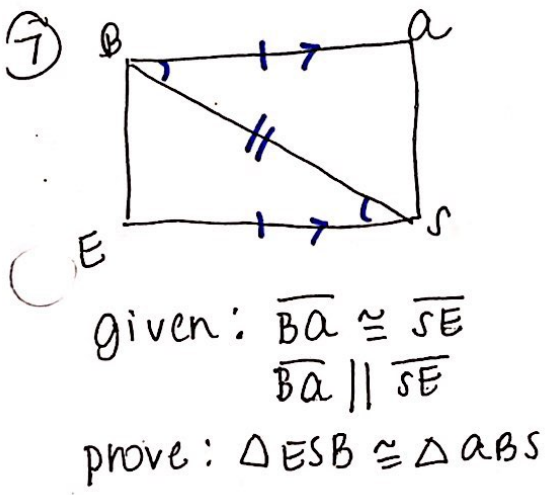 7
B a
E S
given: BA ≅ SE
BA || SE
prove: △ESB ≅ △aBS